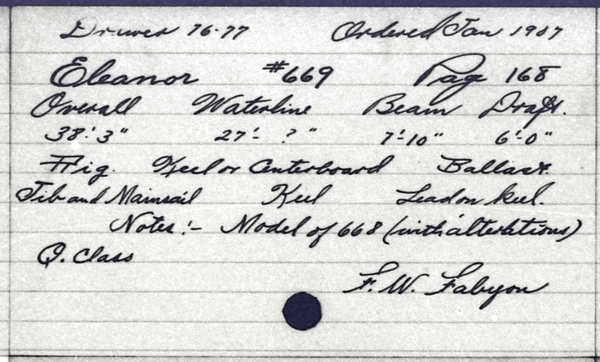 Drawer 76-77 Ordered Jan 1907
Eleanor #669 Page 168
Overall Waterline Beam Draft.
38'-3" 27'- ?" 7'-10" 6'-0"
Rig. Keel or Centerboard Ballast.
Jib and Mainsail Keel Lead on keel.
Notes:- Model of 668 (with alterations)
Q. Class
F. W. Fabyon